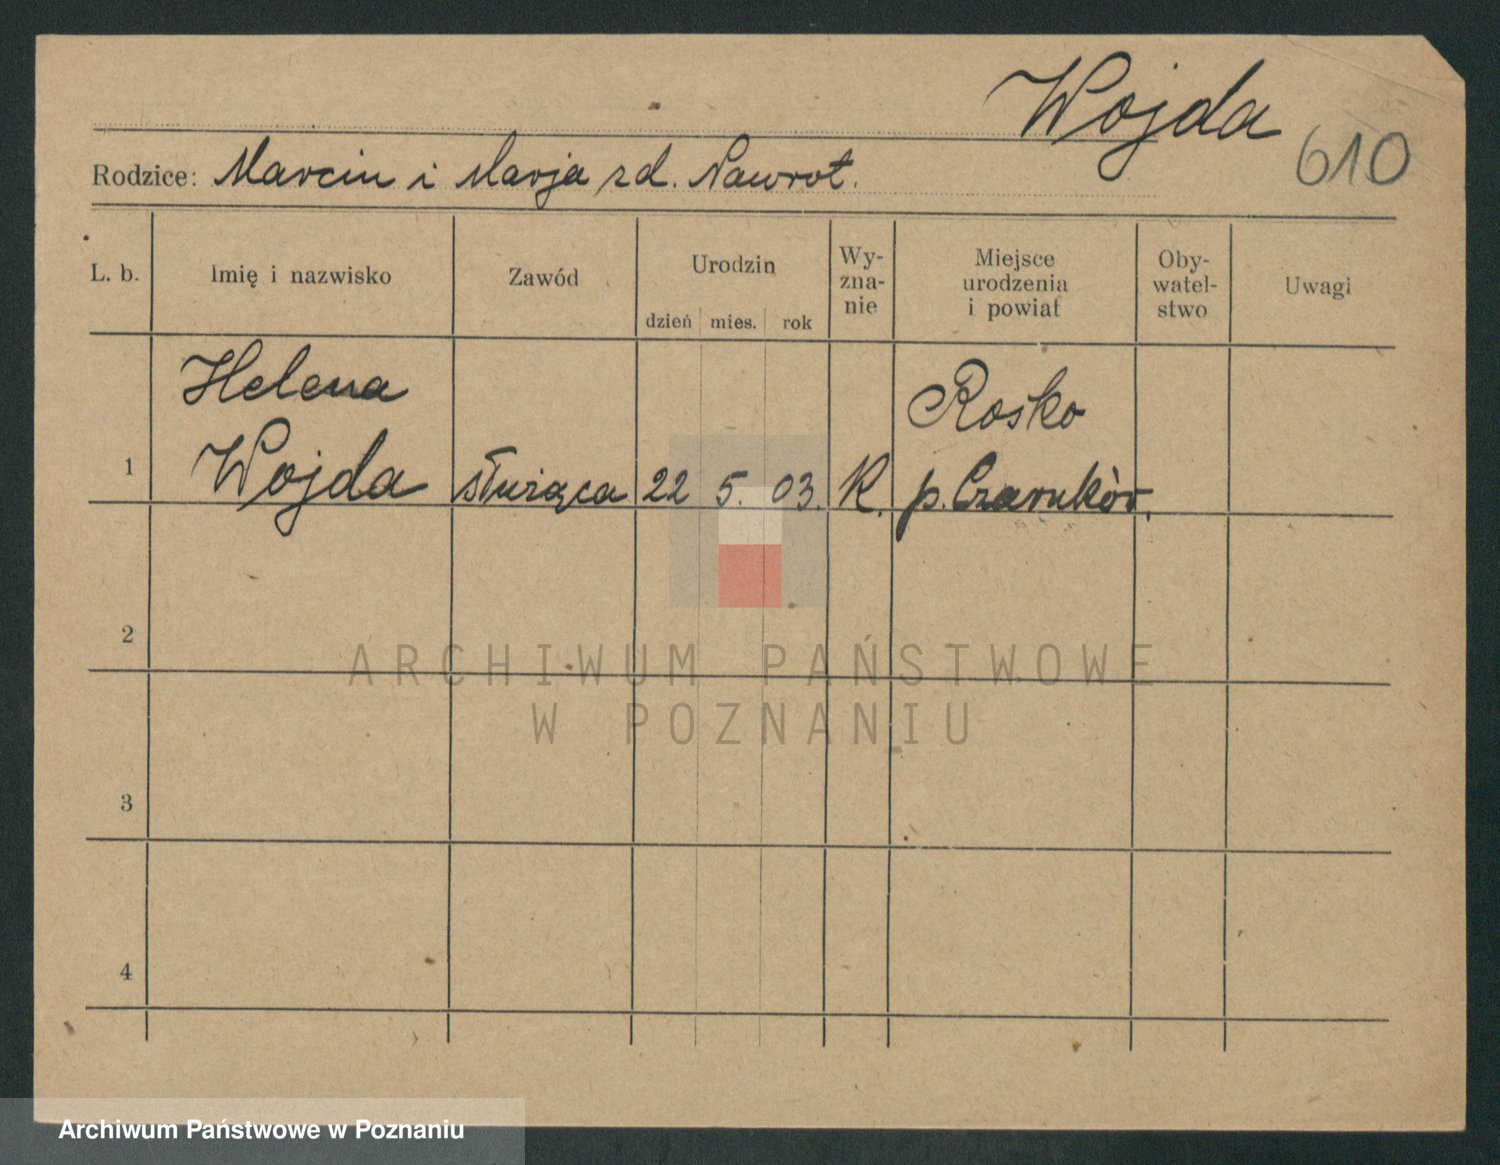 Wojda
610
Rodzice: Marcin i Marja zd. Nawrot.
L. b. Imię i nazwisko Zawód Urodzin dzień mies. rok Wy-zna-nie Miejsce urodzenia i powiat Oby-watel-stwo Uwagi
Helena Rosko
1 Wojda służąca 22 5. 03. K. p. Czarnków.
2
ARCHIWUM PAŃSTWOWE
W POZNANIU
3
4
Archiwum Państwowe w Poznaniu